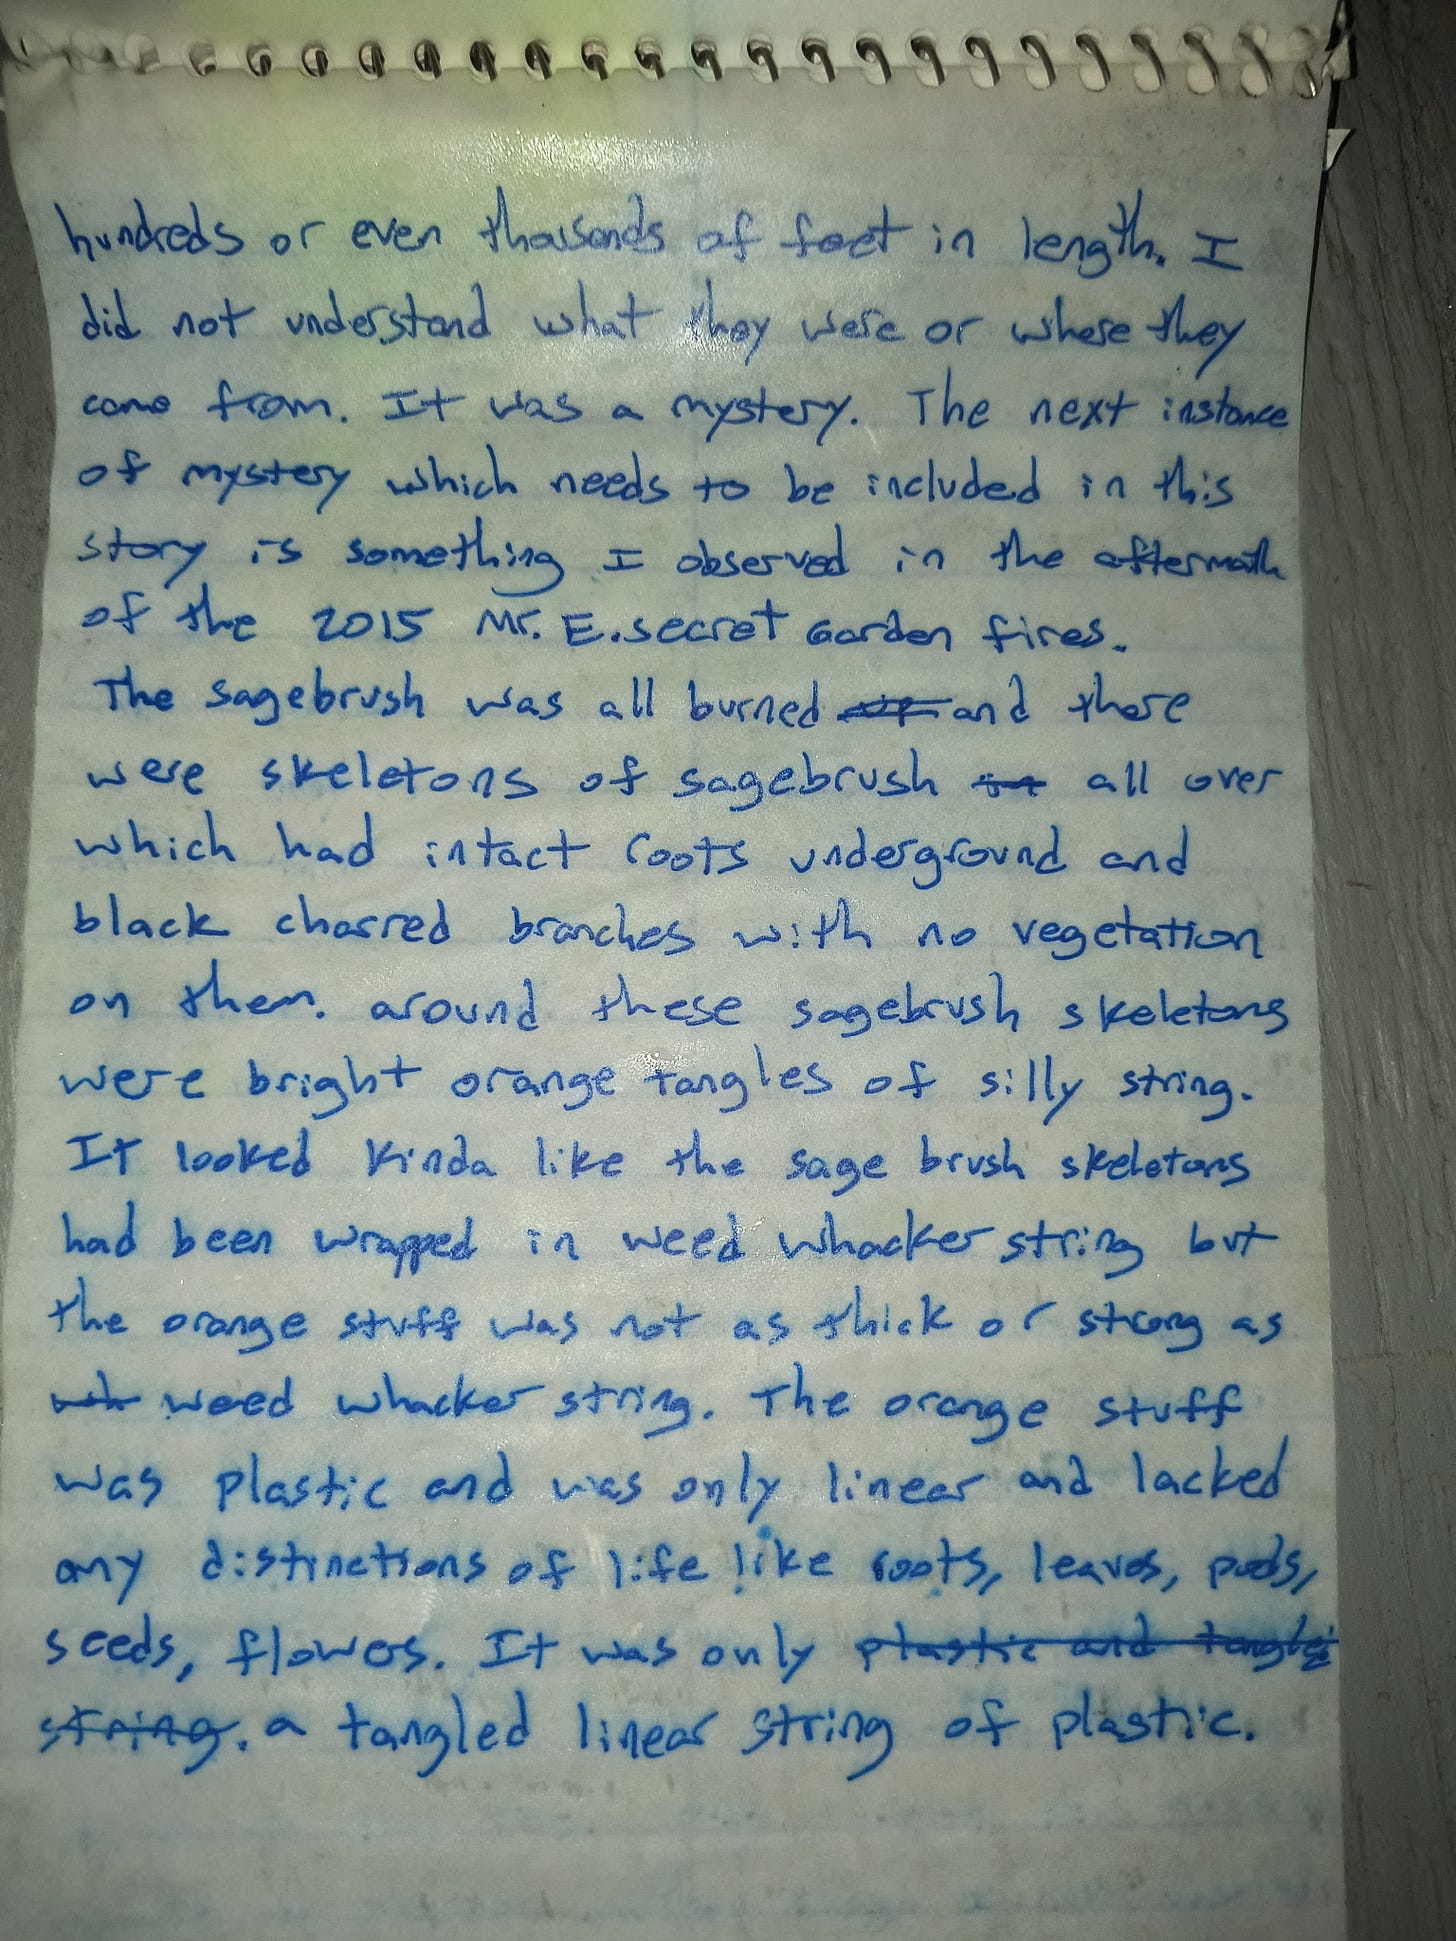 hundreds or even thousands of feet in length. I
did not understand what they were or where they
came from. It was a mystery. The next instance
of mystery which needs to be included in this
story is something I observed in the aftermath
of the 2015 Mr. E. secret Garden fires.
The sagebrush was all burned and there
were skeletons of sagebrush all over
which had intact roots underground and
black charred branches with no vegetation
on them. around these sagebrush skeletons
were bright orange tangles of silly string.
It looked kinda like the sage brush skeletons
had been wrapped in weed whacker string but
the orange stuff was not as thick or strong as
weed whacker string. The orange stuff
was plastic and was only linear and lacked
any distinctions of life like roots, leaves, pods,
seeds, flowers. It was only plastic and tangles
string. a tangled linear string of plastic.